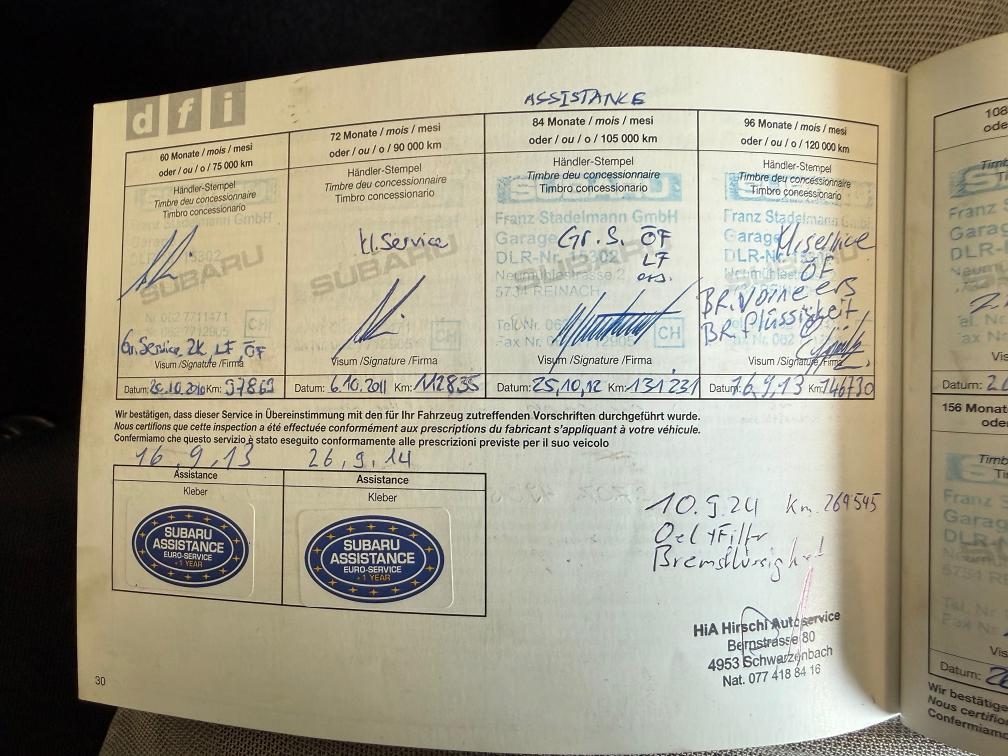 dfi
ASSISTANCE
60 Monate / mois / mesi
oder / ou / o / 75 000 km
Händler-Stempel
Timbre du concessionnaire
Timbro concessionario
SUBARU
Gr. Service ZK, LF, ÖF
Visum /Signature /Firma
Datum: 20.10.2010 Km: 97869
72 Monate / mois / mesi
oder / ou / o / 90 000 km
Händler-Stempel
Timbre du concessionnaire
Timbro concessionario
Kl. Service
SUBARU
Visum /Signature /Firma
Datum: 6.10.2011 Km: 112835
84 Monate / mois / mesi
oder / ou / o / 105 000 km
Händler-Stempel
Timbre du concessionnaire
Timbro concessionario
SUBARU
Franz Stadelmann GmbH
Garage Gr. S. ÖF
DLR-Nr. LF
ers.
Neumühlestrasse 2
5734 REINACH
CH
Visum /Signature /Firma
Datum: 25,10,12 Km: 131231
96 Monate / mois / mesi
oder / ou / o / 120 000 km
Händler-Stempel
Timbre du concessionnaire
Timbro concessionario
SUBARU
Franz Stadelmann GmbH
Garage Kl. service
DLR-Nr. ÖF
BR. Vorne ers
BR. Flüssigkeit
Visum /Signature /Firma
Datum: 16,9,13 Km: 146730
Wir bestätigen, dass dieser Service in Übereinstimmung mit den für Ihr Fahrzeug zutreffenden Vorschriften durchgeführt wurde.
Nous certifions que cette inspection a été effectuée conformément aux prescriptions du fabricant s'appliquant à votre véhicule.
Confermiamo che questo servizio è stato eseguito conformamente alle prescrizioni previste per il suo veicolo
16,9,13
26,9,14
Assistance
Kleber
SUBARU
ASSISTANCE
EURO-SERVICE
+1 YEAR
Assistance
Kleber
SUBARU
ASSISTANCE
EURO-SERVICE
+1 YEAR
10.9.24 Km. 269545
Oel + Filter
Bremsflüssigkeit
HiA Hirschi Autoservice
Bernstrasse 80
4953 Schwarzenbach
Nat. 077 418 84 16
30
108
ode
Franz S
Garage
DLR-
Datum:
156 Monat
ode
Franz
Garag
DLR-N
5734
Datum:
Wir bestätige
Nous certifio
Confermiamo